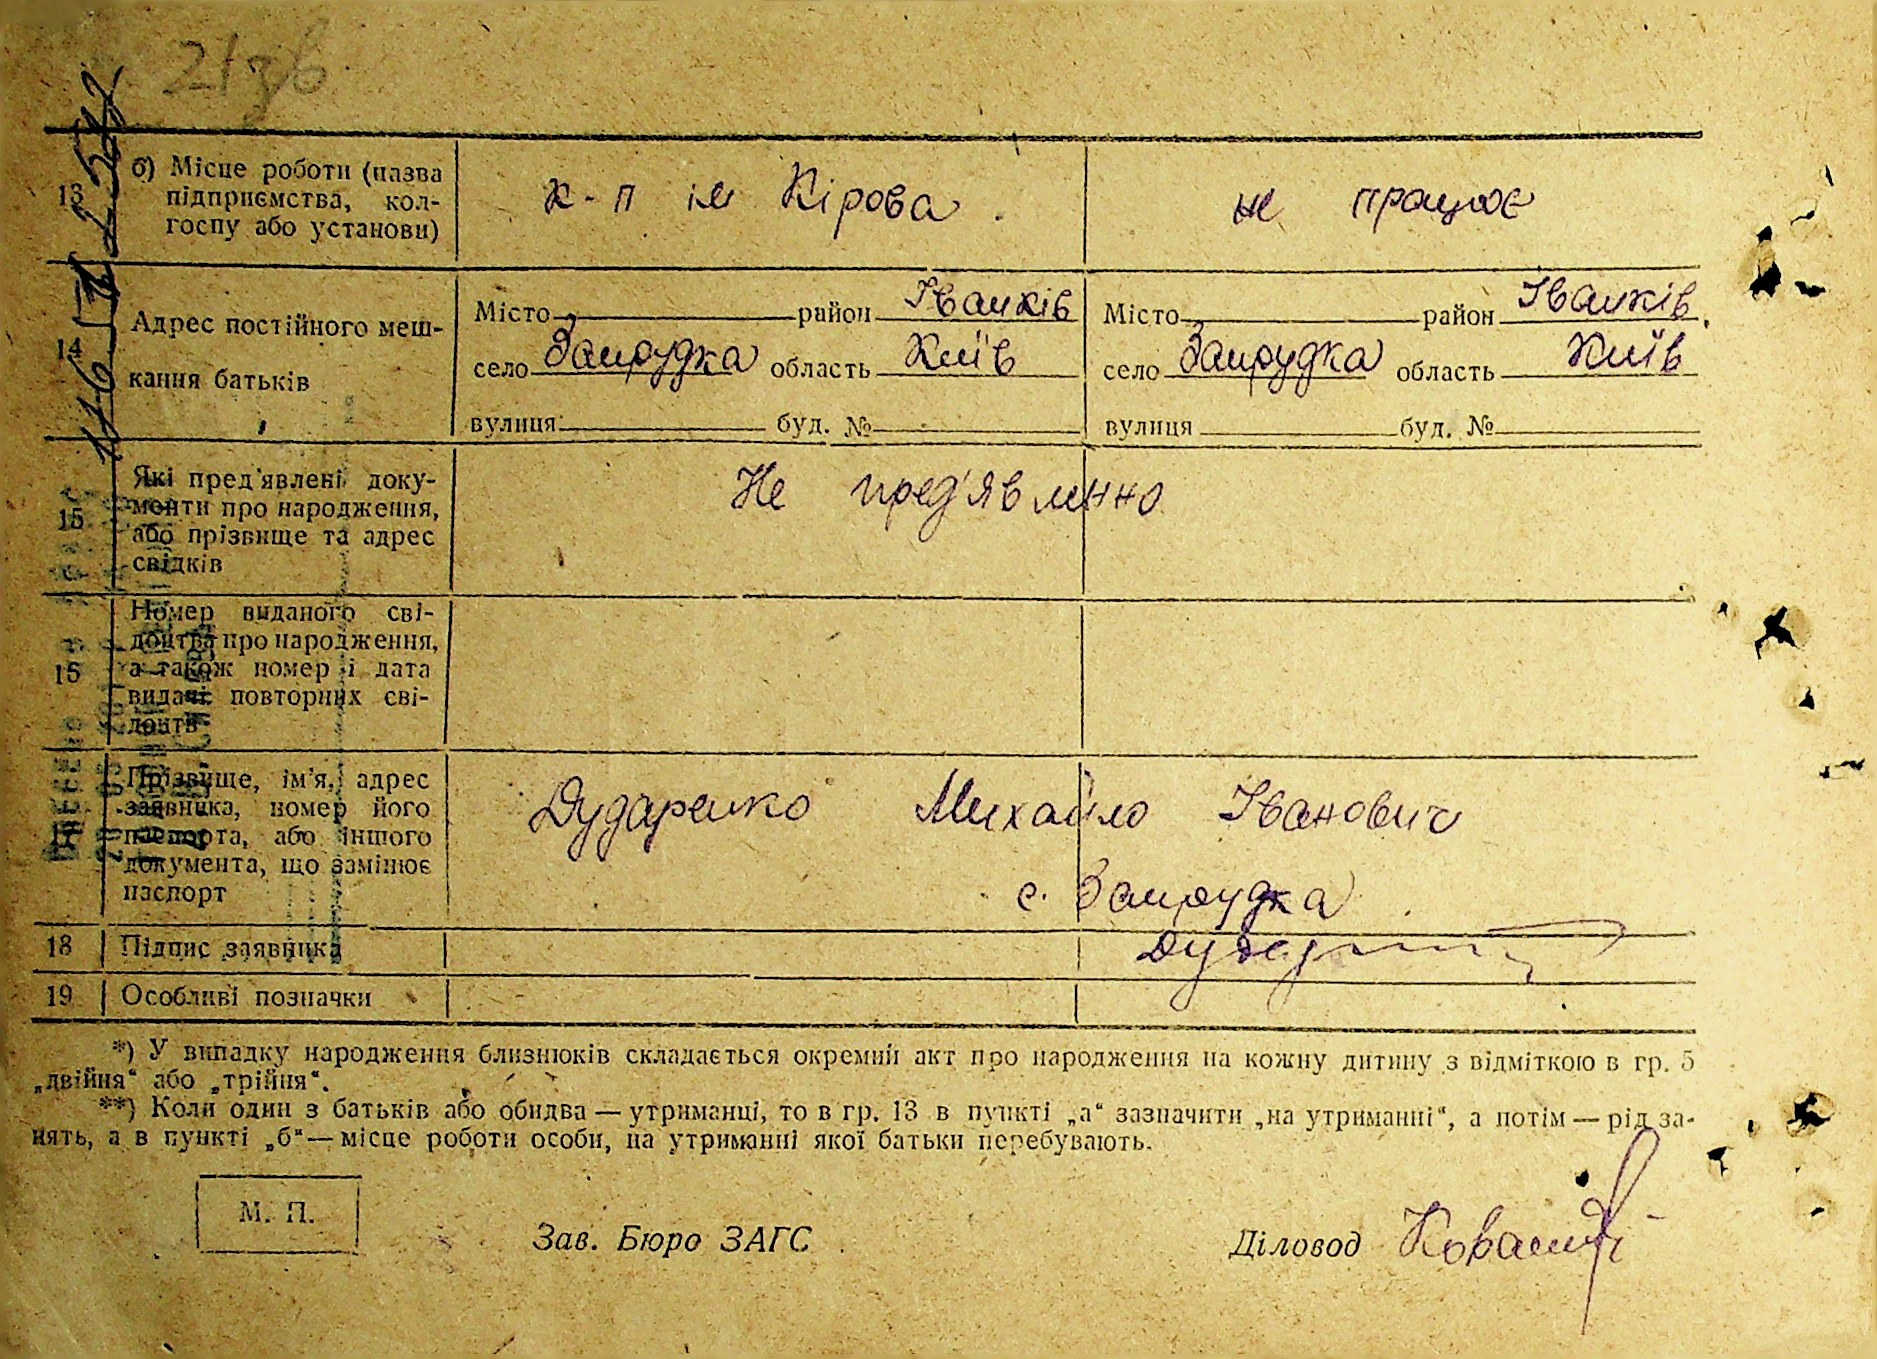 21зв
б) Місце роботи (назва
13 підприємства, кол-
госпу або установи)
к-п ім Кірова.
не працює
14 Адрес постійного меш-
кання батьків
Місто район Іванків
село Запрудка область Київ
вулиця буд. №
Місто район Іванків
село Запрудка область Київ
вулиця буд. №
Які пред'явлені доку-
15 менти про народження,
або прізвище та адрес
свідків
Не пред'явленно
Номер виданого сві-
доцтва про народження,
15 а також номер і дата
видачі повторних сві-
доцтв
Прізвище, ім'я, адрес
заявника, номер його
17 паспорта, або іншого
документа, що замінює
паспорт
Дударенко Михайло Іванович
с. Запрудка
18 Підпис заявника
19 Особливі позначки
*) У випадку народження близнюків складається окремий акт про народження на кожну дитину з відміткою в гр. 5
„двійня“ або „трійня“.
**) Коли один з батьків або обидва — утриманці, то в гр. 13 в пункті „а“ зазначити „на утриманні“, а потім — рід за-
нять, а в пункті „б“ — місце роботи особи, на утриманні якої батьки перебувають.
М. П.
Зав. Бюро ЗАГС
Діловод